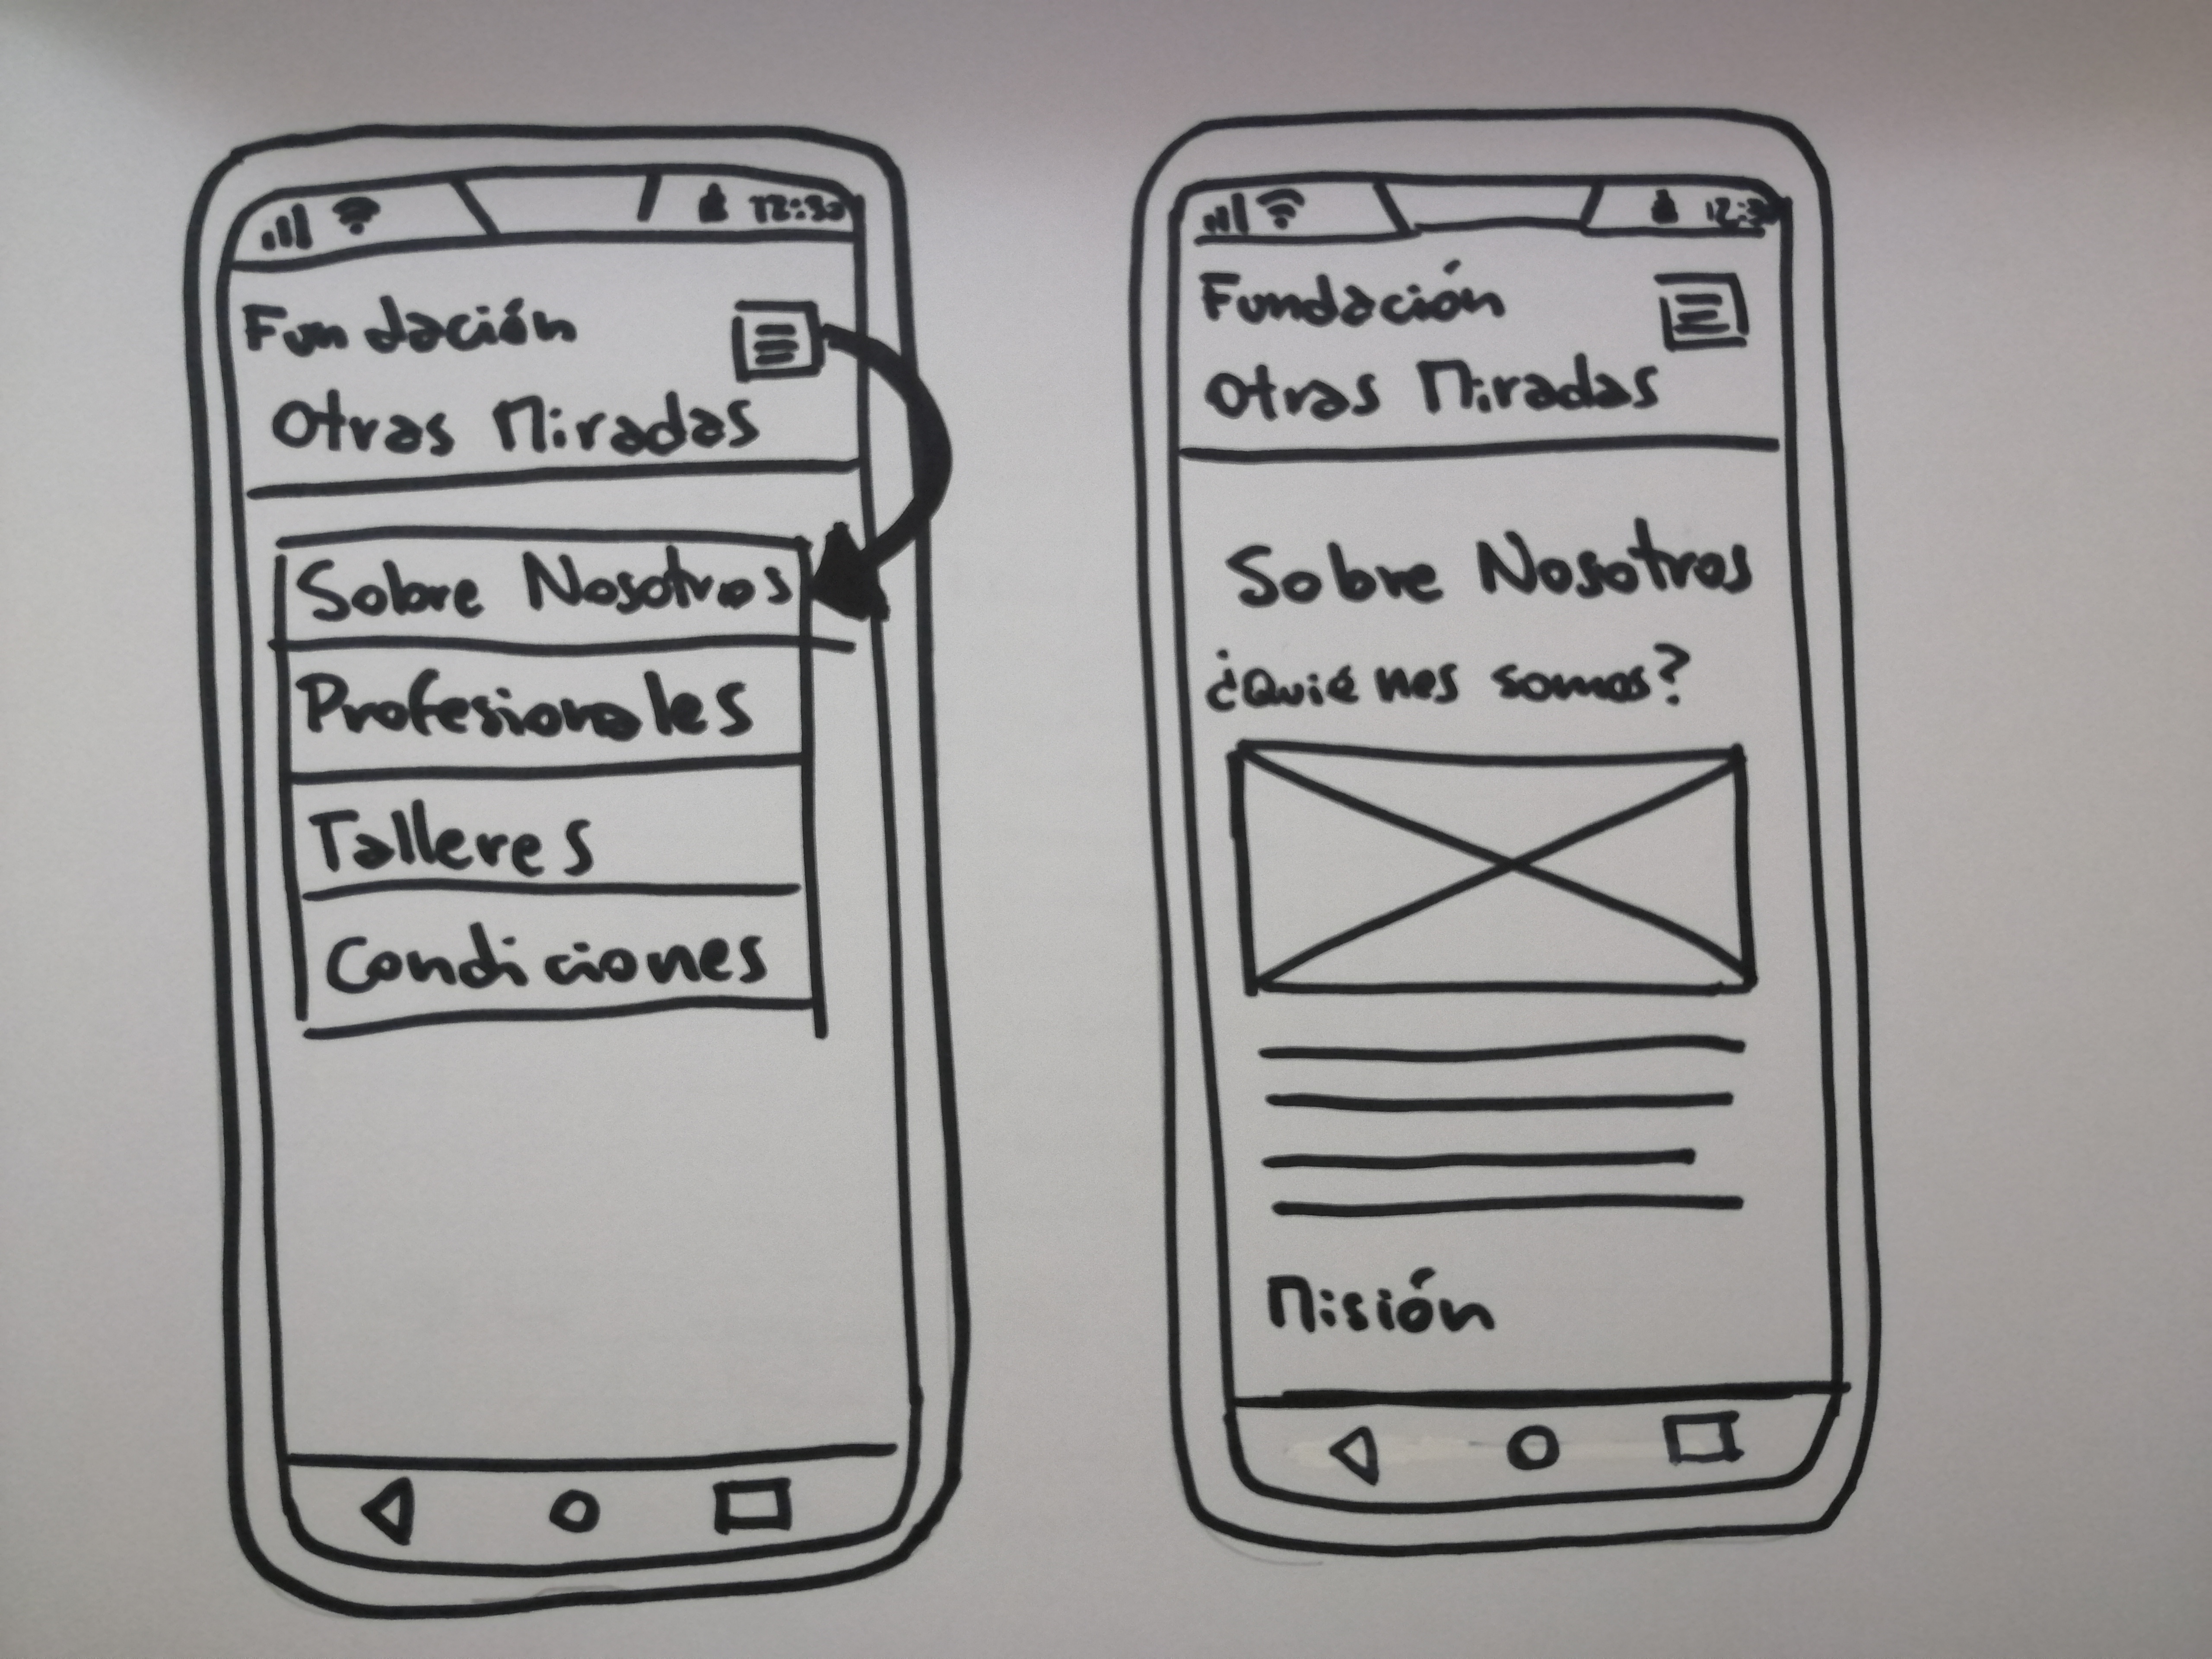 12:30
Fundación
Otras Miradas
Sobre Nosotros
Profesionales
Talleres
Condiciones
Fundación
Otras Miradas
Sobre Nosotros
¿Quiénes somos?
Misión